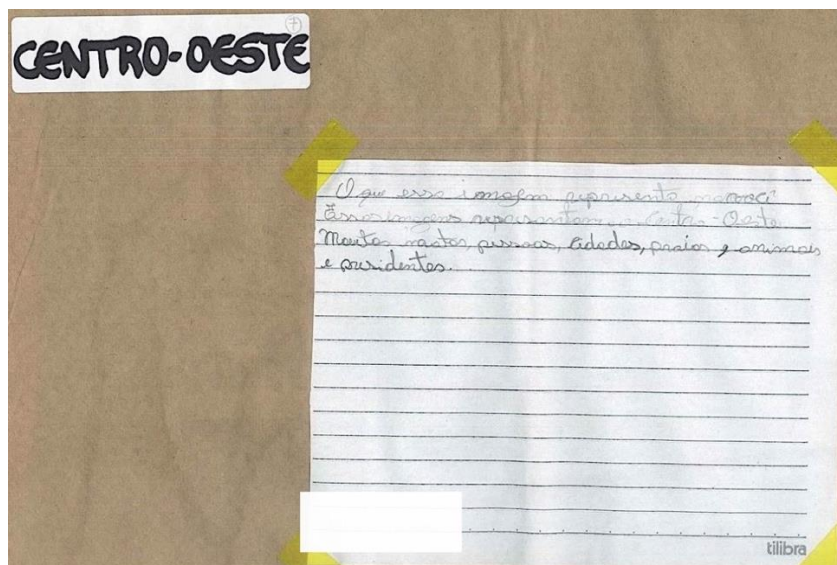 CENTRO-OESTE
7
O que essa imagem representa
Essas imagens representam o Centro-Oeste
Muitos matos, pessoas, cidades, praias, animais
e presidentes.
tilibra